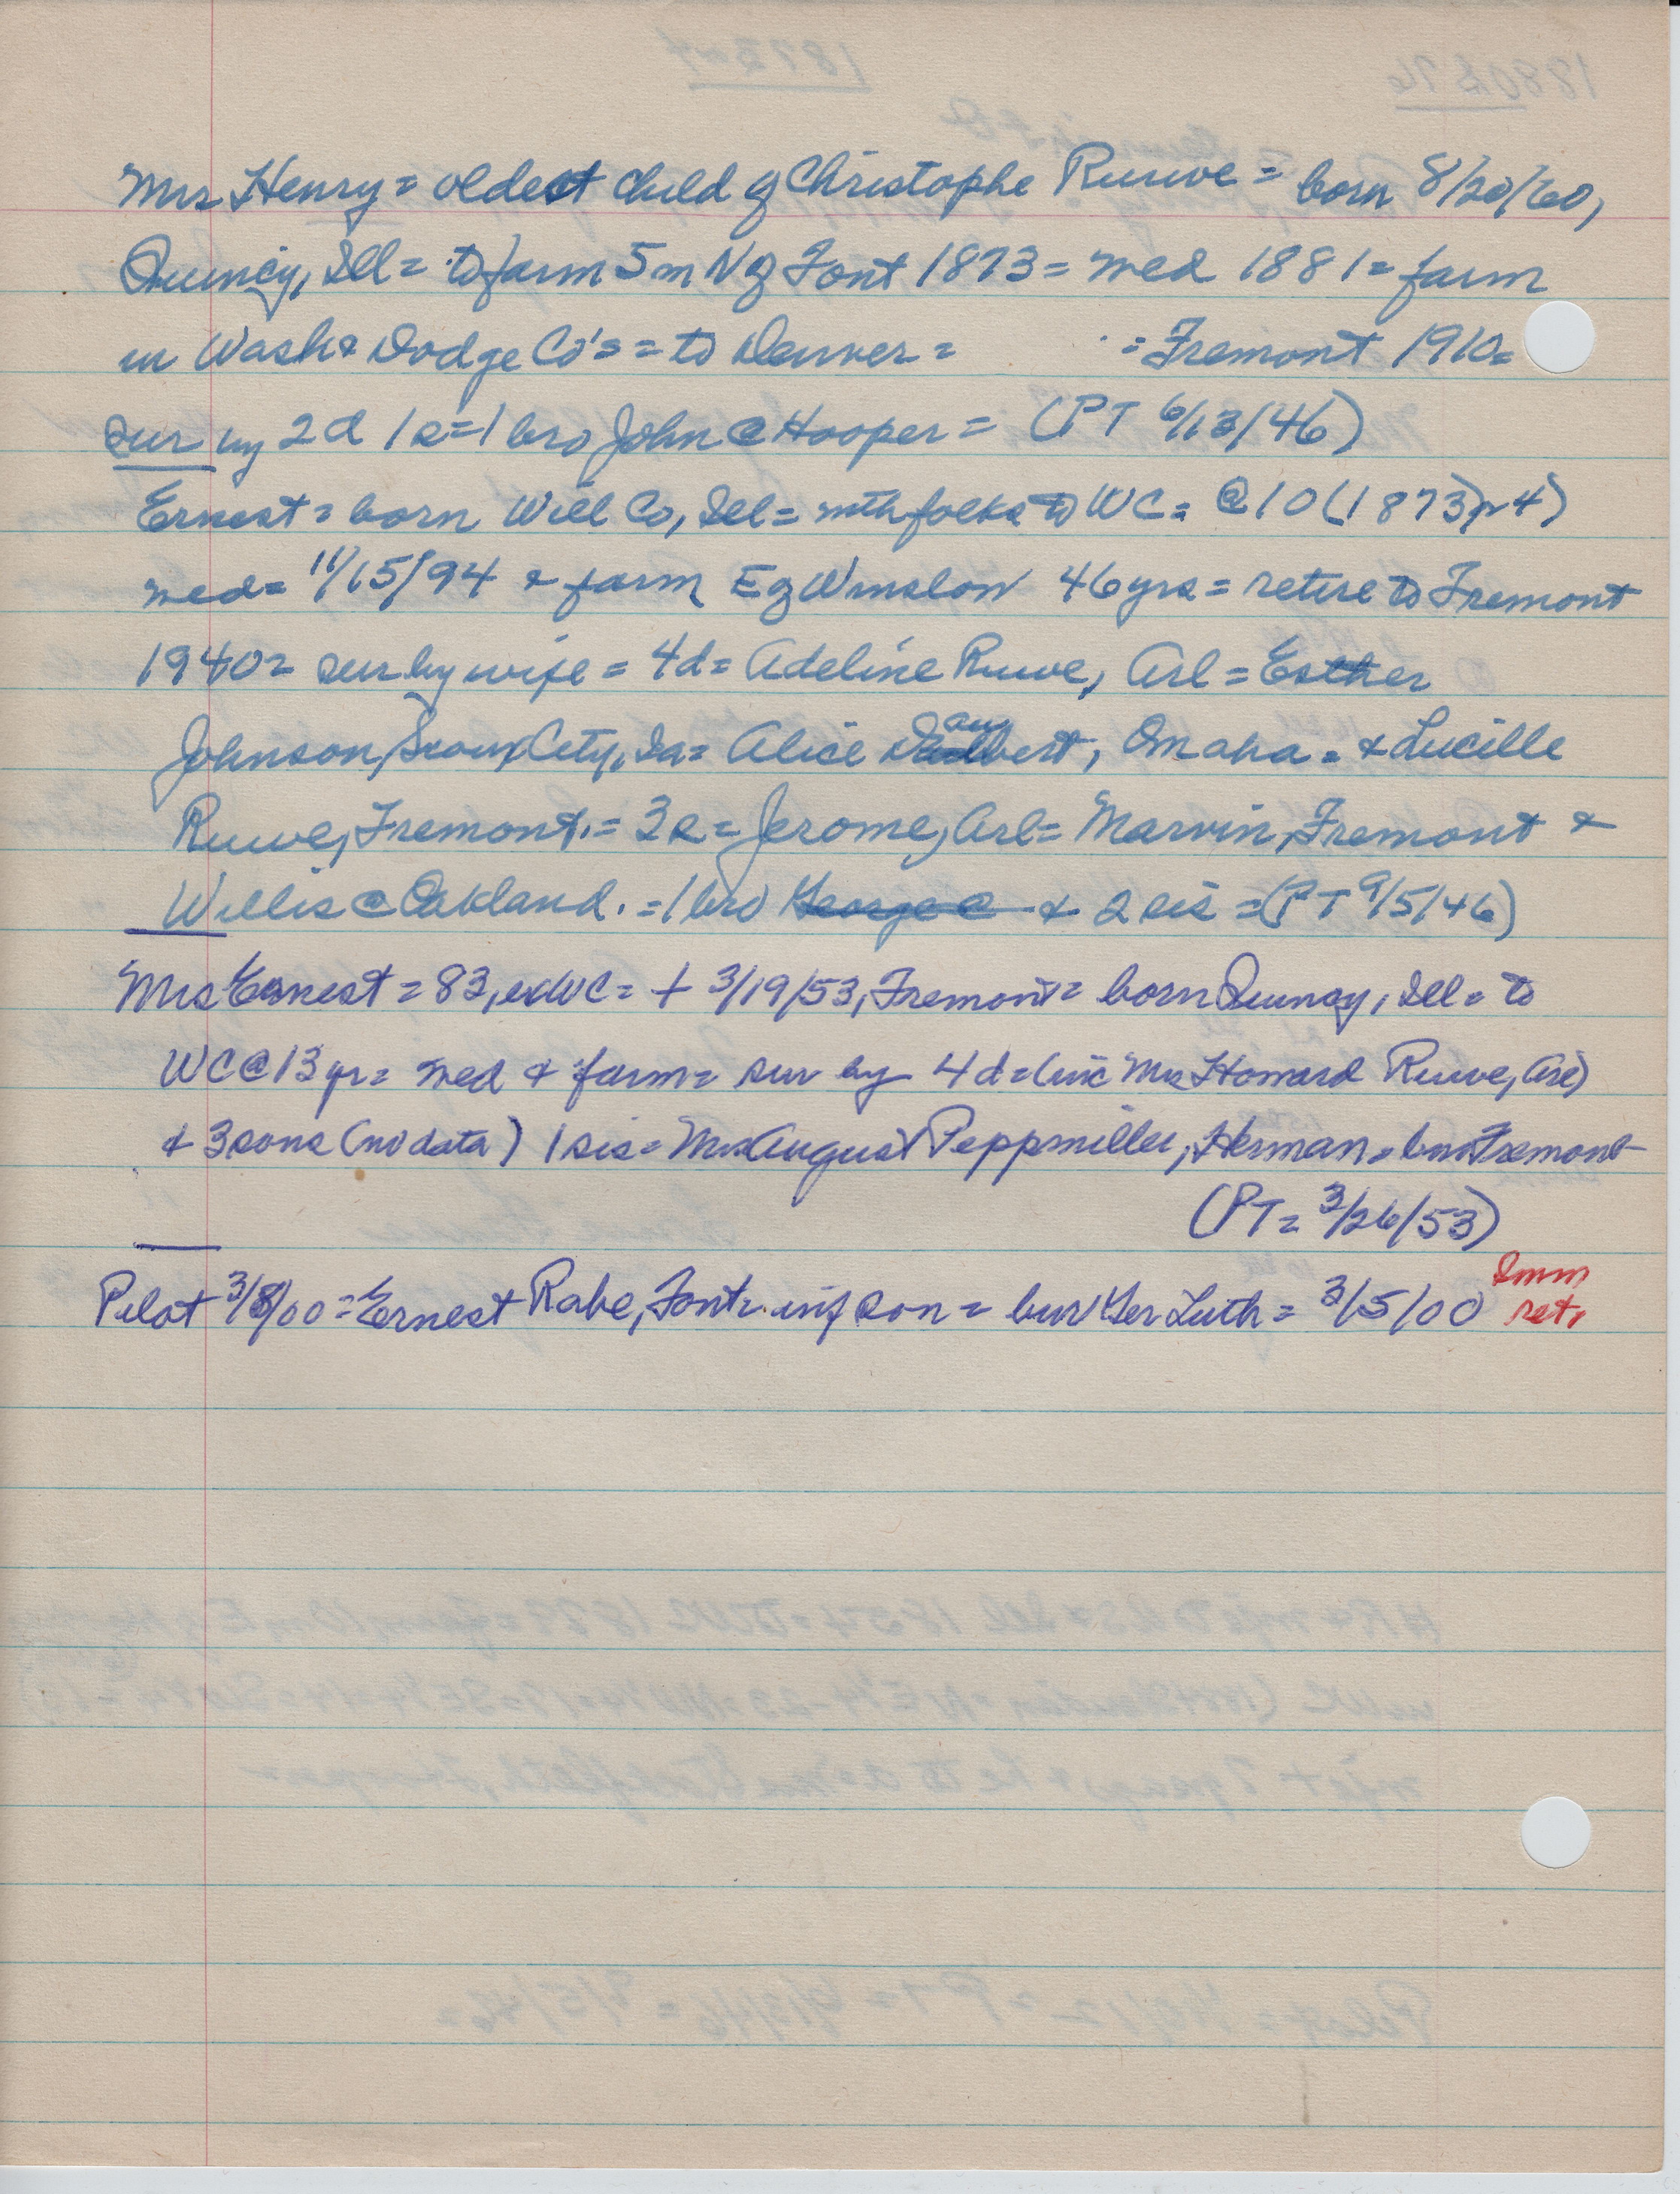 Mrs Henry = oldest child of Christophe Ruwe = born 8/20/60,
Quincy, Ill = to farm 5 m N of Font 1873 = wed 1881 = farm
in Wash & Dodge Co's = to Denver = = Fremont 1910 =
sur by 2 d 1 s = 1 bro John @ Hooper = (PT 6/13/46)
Ernest = born Will Co, Ill = with folks to WC = @ 10 (1873 pr 4)
wed = 11/15/94 & farm E of Winslow 46 yrs = retire to Fremont
1940 = sur by wife = 4 d = Adeline Ruwe, Arl = Esther
Johnson, Sioux City, Ia = Alice Daubert, Omaha = & Lucille
Ruwe, Fremont. = 3 s = Jerome, Arl = Marvin, Fremont &
Willis @ Oakland. = 1 bro George @ & 2 sis = (PT 9/5/46)
Mrs Ernest = 83, exWC = + 3/19/53, Fremont = born Quincy, Ill = to
WC @ 13 yr = wed & farm = sur by 4 d = (inc Mrs Howard Ruwe, Arl)
& 3 sons (no data) 1 sis = Mrs August Peppmiller, Herman = bur Fremont
(PT = 3/26/53)
Pilot 3/8/00 = Ernest Rabe, Font = inf son = bur Ger Luth = 3/5/00
Imm
ret.